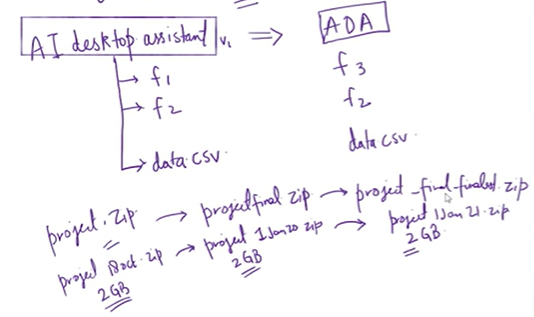 AI desktop assistant v1 ⇒ ADA
f1 f3
f2 f2
data.csv data.csv
project.zip → projectfinal zip → project_final_finalest.zip
project 18oct.zip → project 1Jan20 zip → project 1Jan 21.zip
2GB 2GB 2GB